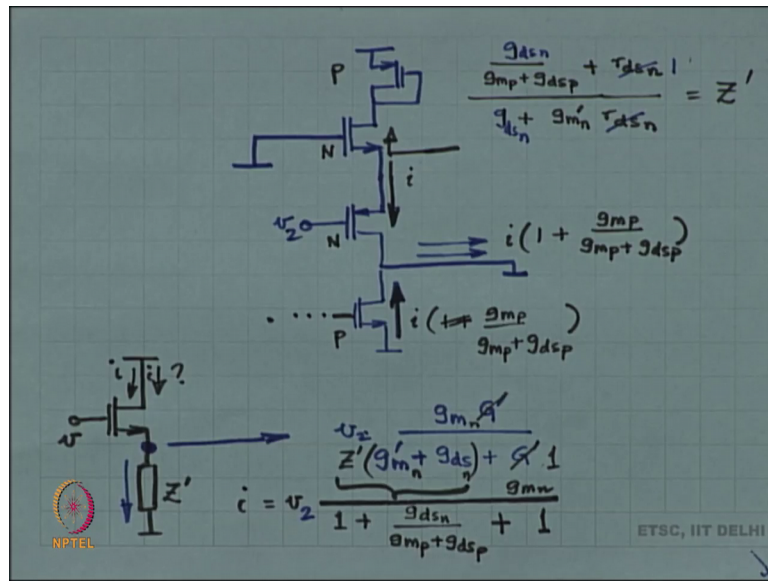 P
g_dsn / (g_mp + g_dsp) + r_dsn 1
g_dsn + g'_mn r_dsn
= Z'
N
i
v_2
N
i(1 + g_mp / (g_mp + g_dsp))
. . . .
P
i( g_mp / (g_mp + g_dsp) )
i i ?
v
Z'
v_2 g_mn
Z'(g'_mn + g_dsn) + 1
i = v_2 g_mn / (1 + g_dsn / (g_mp + g_dsp) + 1)
NPTEL
ETSC, IIT DELHI